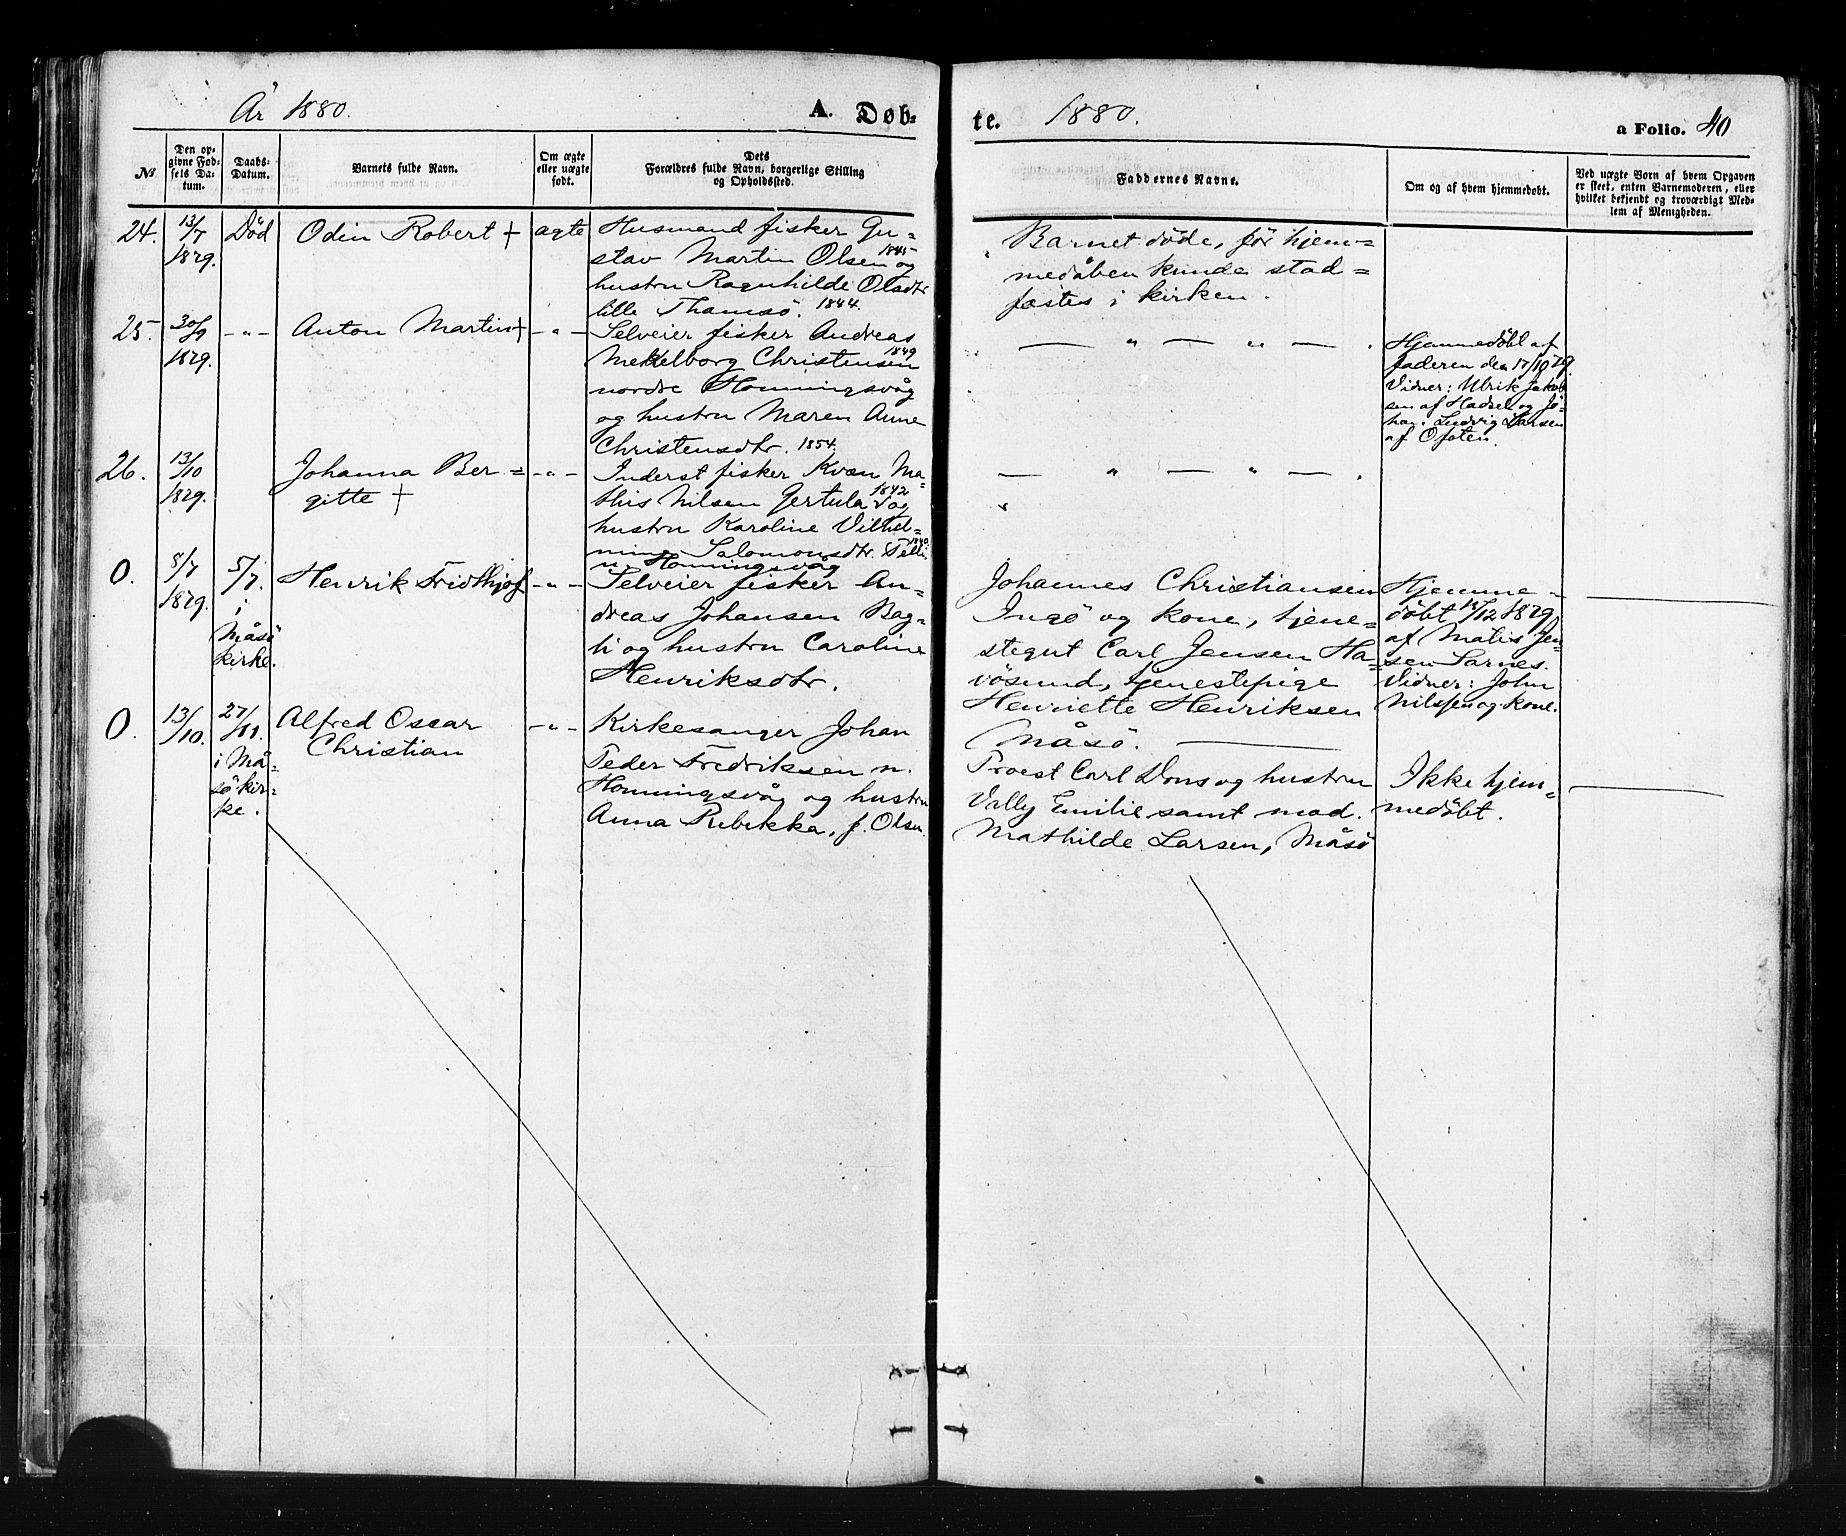 År 1880.
A. Døb-
te. 1880.
a Folio. 40
No
Den op-
givne Fød-
sels Da-
tum.
Daabs-
Datum.
Barnets fulde Navn.
Om ægte
eller uægte
født.
Dets
Forældres fulde Navn, borgerlige Stilling
og Opholdssted.
Faddernes Navne.
Om og af hvem hjemmedøbt.
Ved uægte Børn af hvem Opgaven
er skeet, enten Barnemoderen, eller
hvilket bekjendt og troværdigt Med-
lem af Menigheden.
24.
13/7
1879.
Død
Odin Robert +
ægte
Husmand fisker Gu-
stav Martin Olsen 1845 og
hustru Ragnhilde Olsdtr
lille Thamsö. 1844.
Barnet döde, för hjem=
medåben kunde stad=
fæstes i kirken.
25.
30/9
1879.
- " -
Anton Martin +
- " -
Selveier fisker Andreas
Mekkelborg Christensen 1849
nordre Honningsvåg
og hustru Maren Anne
Christensdtr. 1854.
— " — " — .
Hjemmedöbt af
faderen den 17/10 79.
Vidner: Ulrik Jakob
sen af Hadsel og Jo-
han Ludvig Larsen
af Ofoten.
26.
13/10
1879.
Johanna Ber=
gitte +
- " -
Inderst fisker Kvæn Ma-
this Nilsen Gertula 1842 og
hustru Karoline Vilhel=
mine Salomonsdtr. 1840.
n. Honningsvåg
— " — " — .
O.
8/7
1879.
5/7.
i
Måsö
kirke.
Henrik Fridthjof
- " -
Selveier fisker An-
dreas Johansen Bag-
li og hustru Caroline
Henriksdtr.
Johannes Christiansen
Ingö og kone, tjene-
stegut Carl Jensen Ha-
vösund, tjenestepige
Henriette Henriksen
Måsö.
Hjemme-
döbt /12 1879
af Matis Jen-
sen Sarnes.
Vidner: John
Nilsen og kone.
O.
13/10.
27/11.
i Må-
sö kir-
ke.
Alfred Oscar
Christian
- " -
Kirkesanger Johan
Peder Fredriksen n.
Honningsvåg og hustru
Anna Rebekka, f. Olsen.
Provst Carl Dons og hustru
Vally Emilie samt mad.
Mathilde Larsen, Måsö
Ikke hjem=
medöbt.